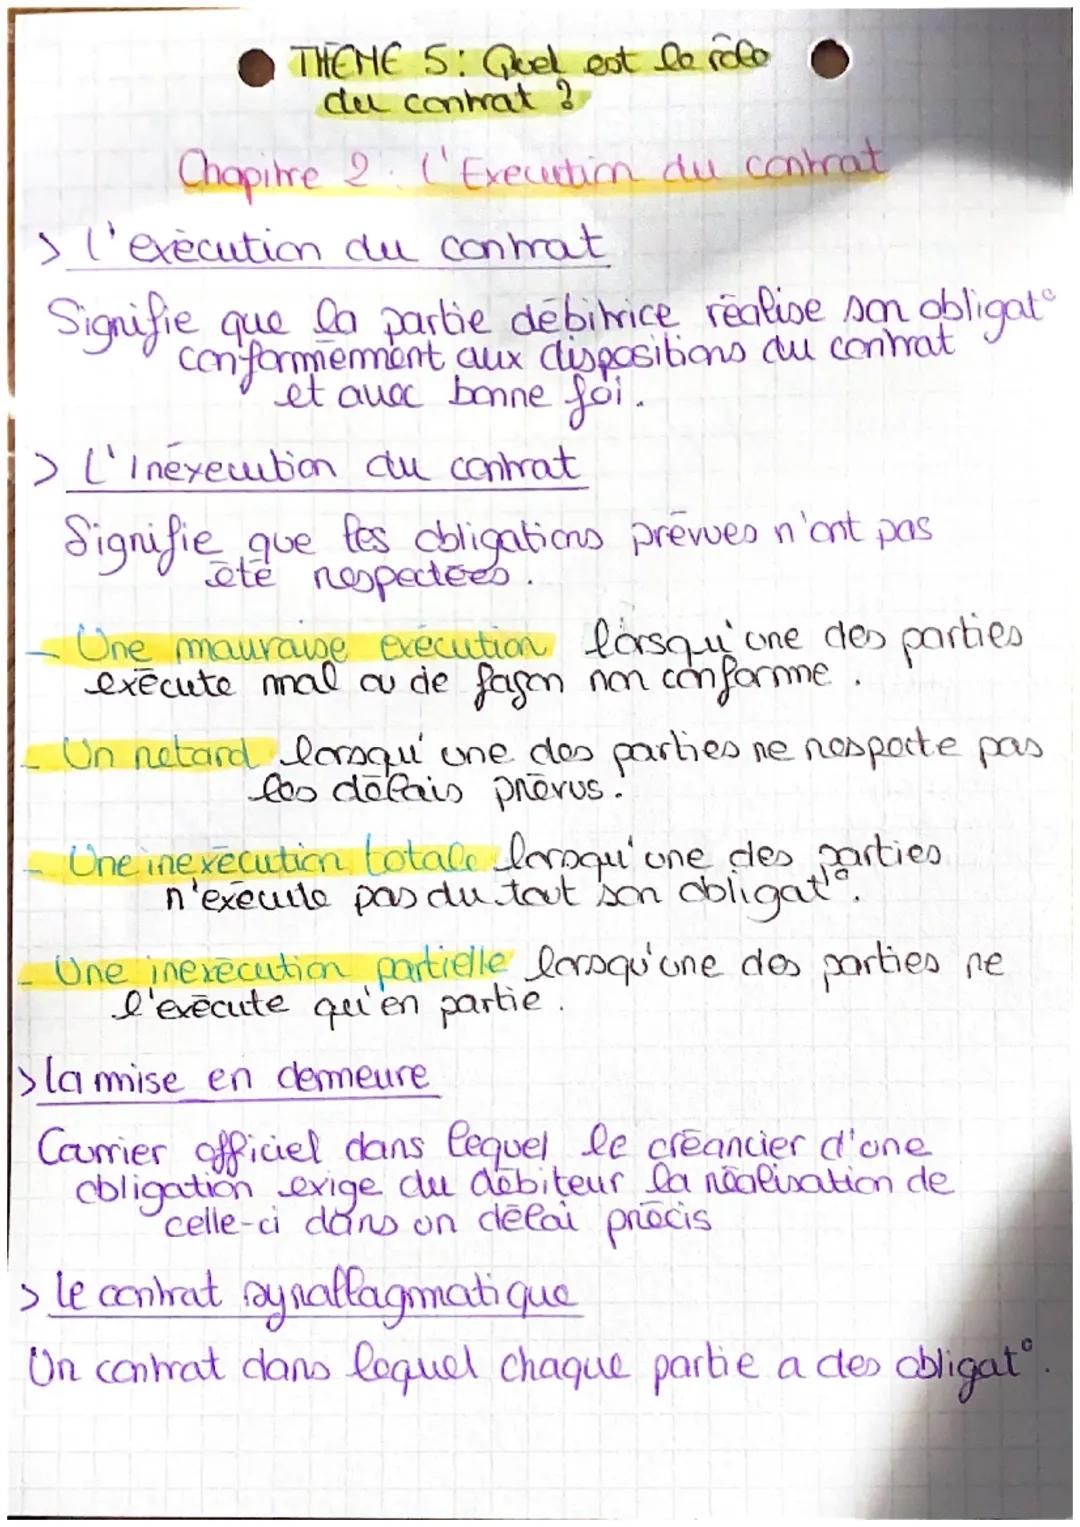 THEME 5: Quel est le rôle
du contrat ?
Chapitre 2: L'Execution du contrat
> L'exécution du contrat
Signifie que la partie débitrice réalise son obligat°
conformément aux dispositions du contrat
et avec bonne foi.
> L'Inéxecution du contrat
Signifie que les obligations prévues n'ont pas
été respectées.
- Une mauvaise exécution lorsqu'une des parties
exécute mal ou de façon non conforme.
- Un retard lorsqu'une des parties ne respecte pas
les délais prévus.
- Une inexécution totale lorsqu'une des parties
n'exécute pas du tout son obligat°.
- Une inexécution partielle lorsqu'une des parties ne
l'exécute qu'en partie.
> la mise en demeure
Courrier officiel dans lequel le créancier d'une
obligation exige du débiteur la réalisation de
celle-ci dans un délai précis
> le contrat synallagmatique
Un contrat dans lequel chaque partie a des obligat°.